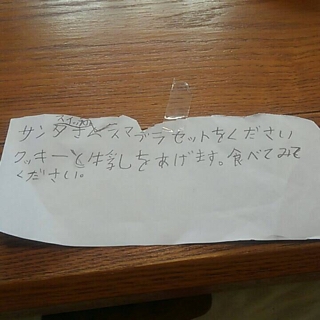 スイッチ
サンタさんスマブラセットをください
クッキーと牛乳をあげます。食べてみて
ください。